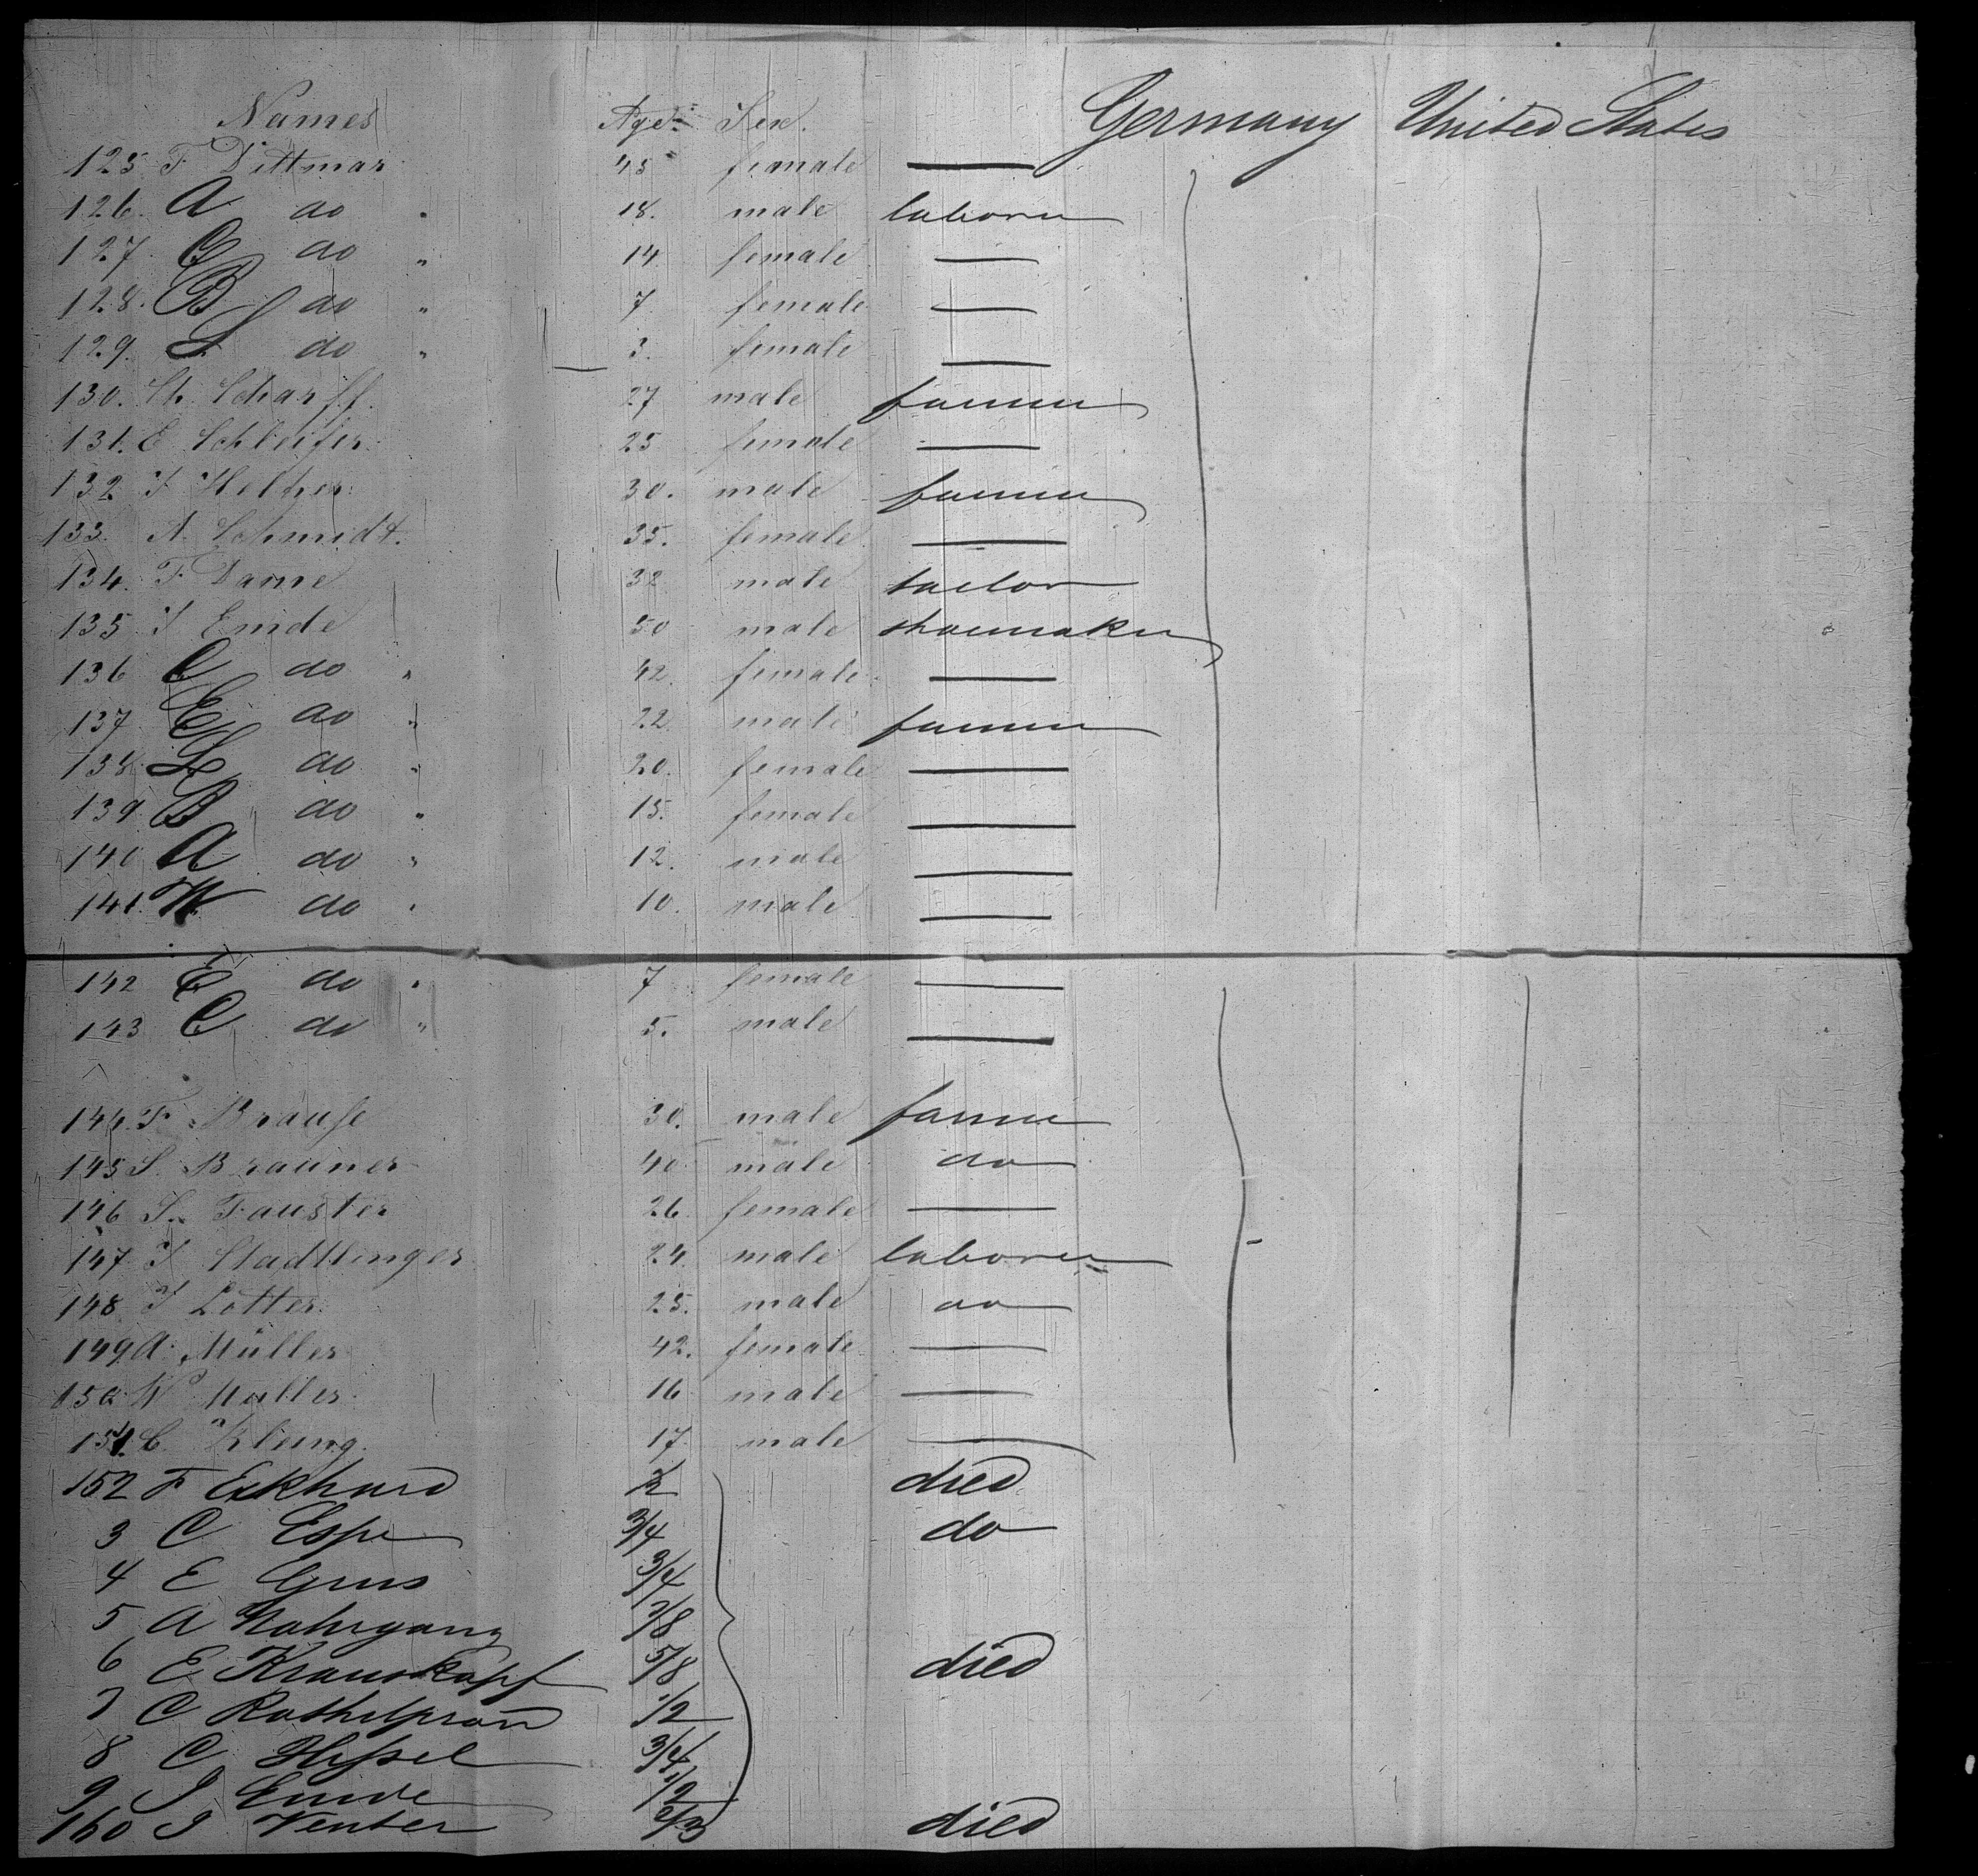 Names Age Sex. Germany United States
125 F Dittmar 45 female
126. A do " 18. male laborer
127. C do " 14 female
128. B do " 7 female
129. L do " 3. female
130. Ch Scharff. 27 male farmer
131. E Schleifer. 25 female
132 J 30. male farmer
133. A. Schmidt. 35. female
134. F Dame 32 male taelor
135 J Emde 50 male shoemaker
136 C do " 42. female
137 E do " 22. male farmer
138 L do " 20. female
139 B do " 15. female
140 A do " 12. male
141. W do " 10. male
142 E do " 7 female
143 C do " 5. male
144. F Brause 30. male farmer
145 S. Brauner 40 male do
146 S. Fauster 26 female
147 J Stadtlinger 24. male laborer
148. J Lotter. 25. male do
149 A. Müller 42. female
150 W Muller. 16 male
151. C. Kleing. 17 male
152 F Eckhard 1/2 died
3 C Espe 3/4 do
4 E Grus 3/4
5 A Nahrgang 7/8
6 E Krauskopf 5/8 died
7 C 1/2
8 C Hessel 3/4
9 J Emde 1/2
160 J Venter 2/3 died